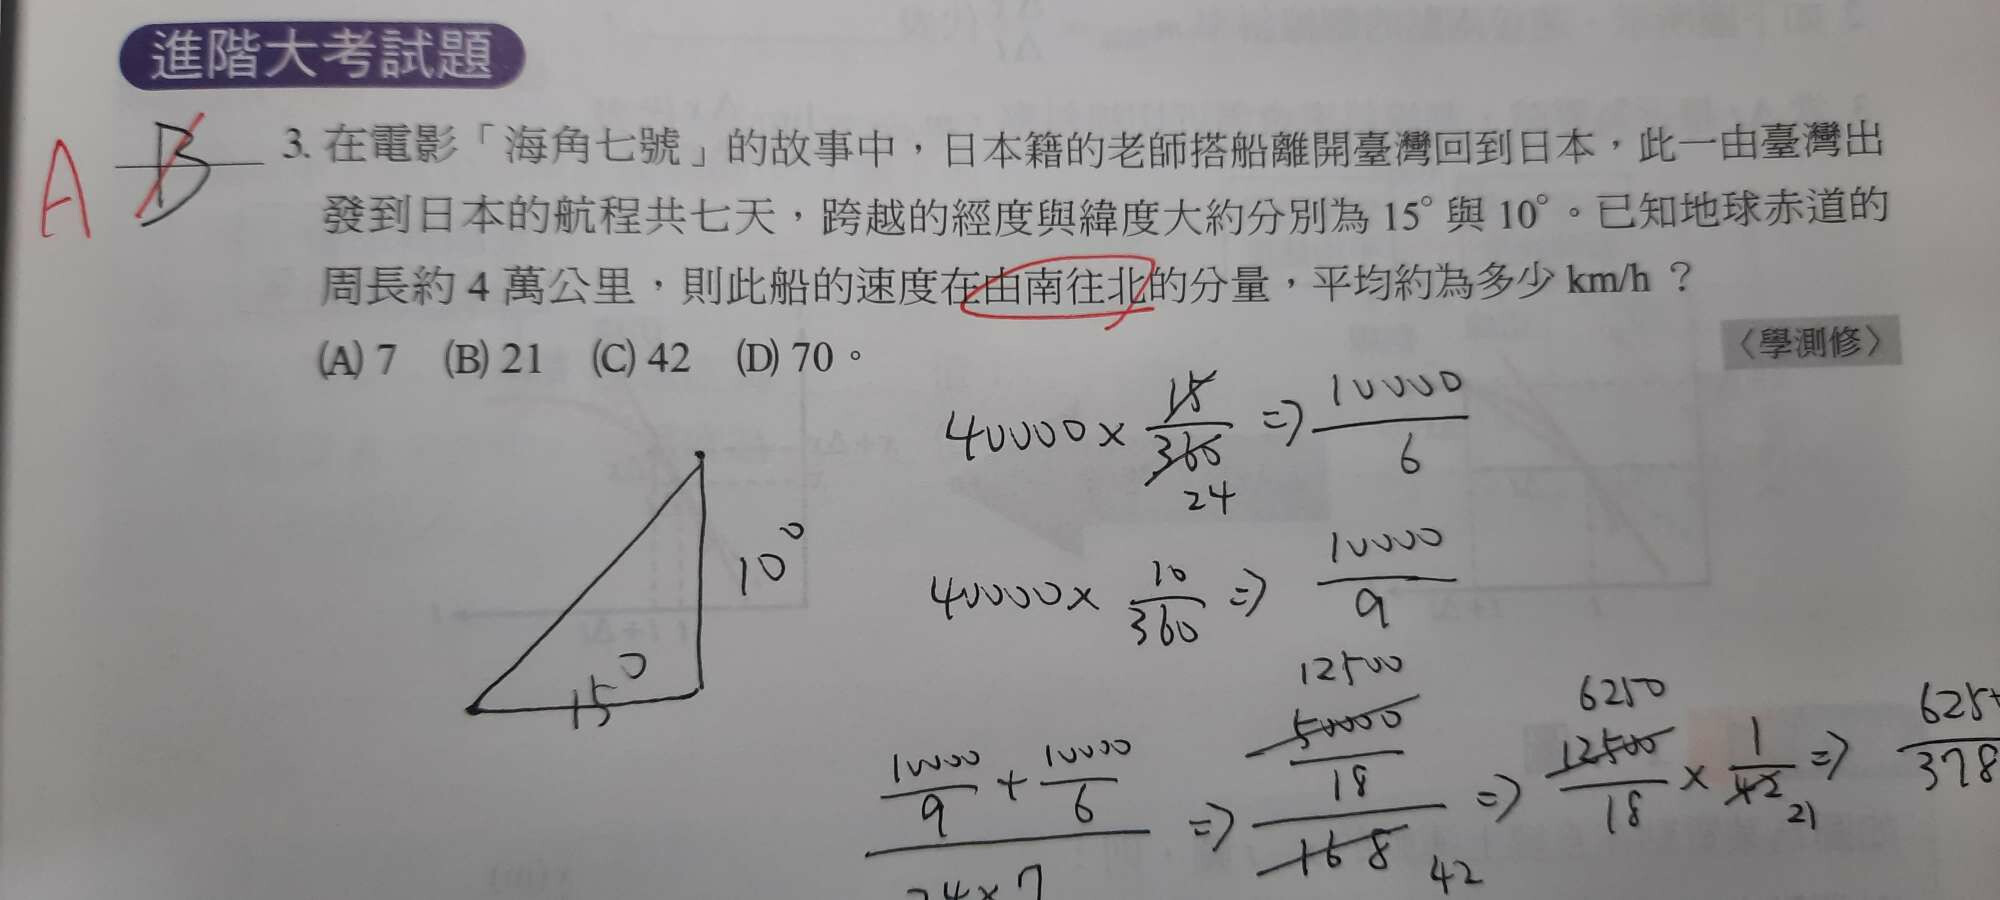 進階大考試題
A B 3. 在電影「海角七號」的故事中，日本籍的老師搭船離開臺灣回到日本，此一由臺灣出
發到日本的航程共七天，跨越的經度與緯度大約分別為 15° 與 10°。已知地球赤道的
周長約 4 萬公里，則此船的速度在由南往北的分量，平均約為多少 km/h？
(A) 7 (B) 21 (C) 42 (D) 70。
〈學測修〉
40000 × 15/360 24 ⇒ 10000/6
10°
40000 × 10/360 ⇒ 10000/9
15°
10000/9 + 10000/6 / 24×7 ⇒ 12500 50000/18 / 168 42 ⇒ 6250 12500/18 × 1/42 21 ⇒ 625 /378